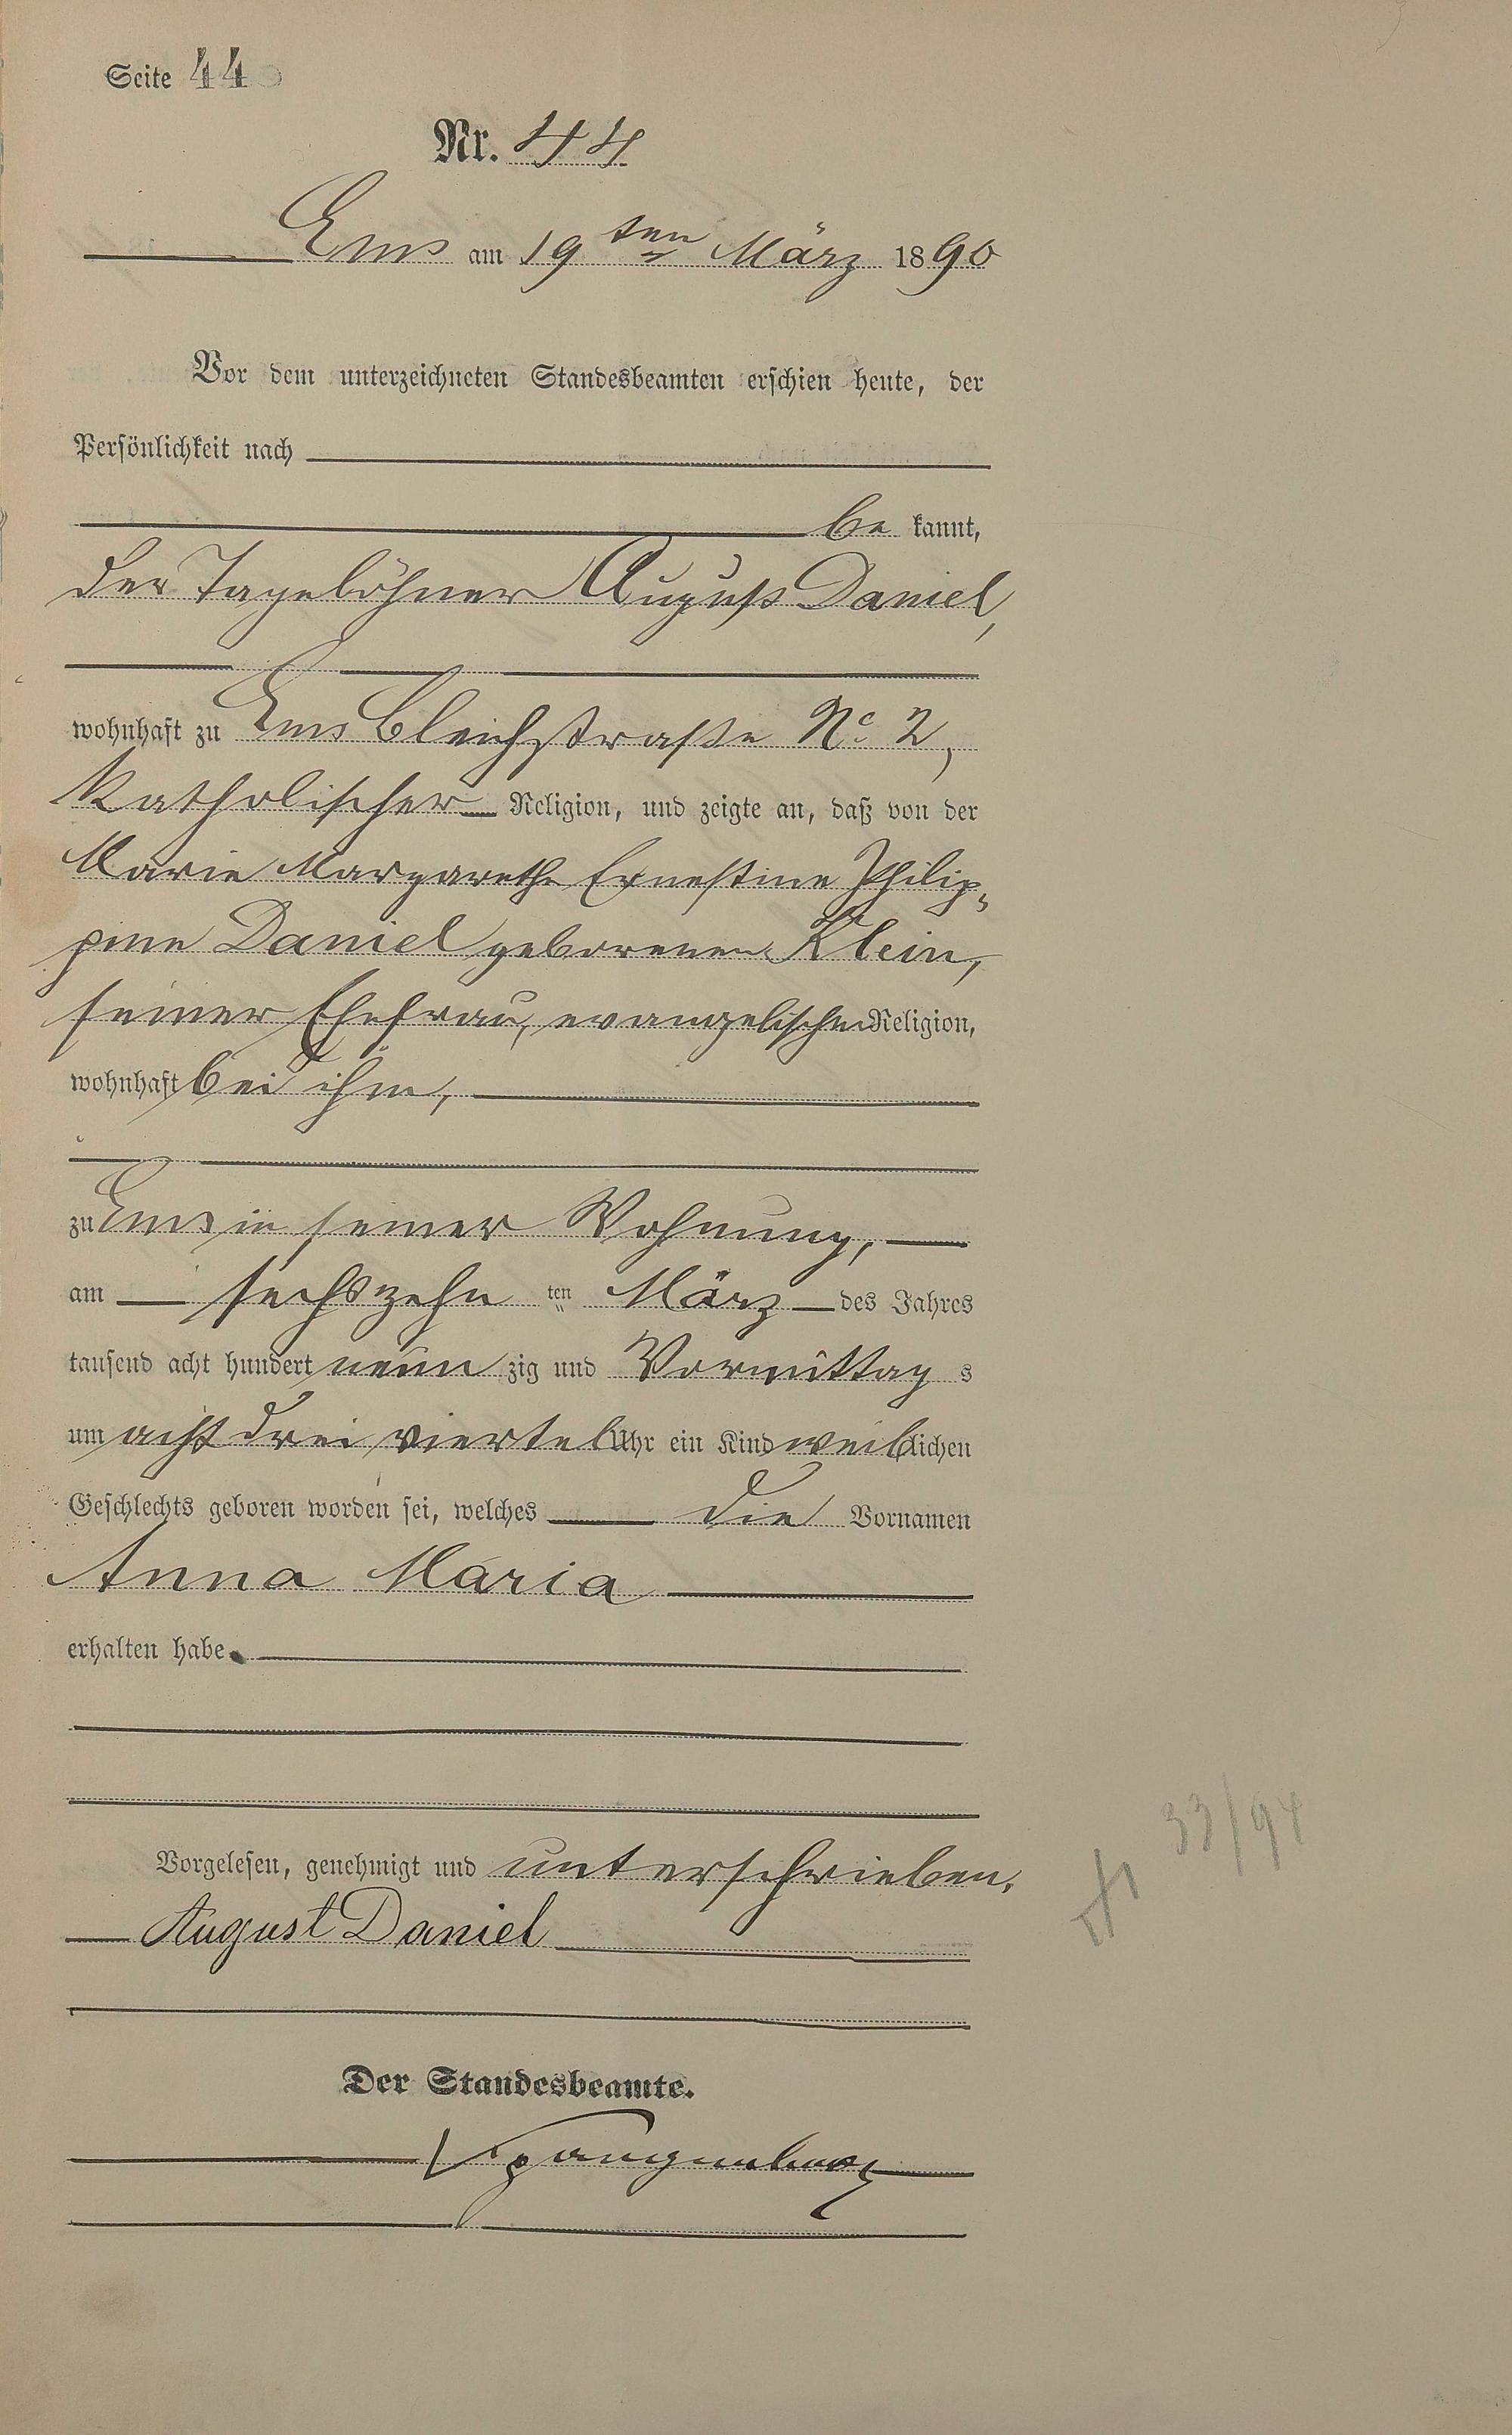 Seite 44
Nr. 44
Ems am 19ten März 1890
Vor dem unterzeichneten Standesbeamten erschien heute, der
Persönlichkeit nach
be kannt,
der Tagelöhner August Daniel,
wohnhaft zu Ems Bleichstraße No 2,
katholischer Religion, und zeigte an, daß von der
Marie Margarethe Ernestine Philip-
pine Daniel geborenen Klein,
seiner Ehefrau, evangelischer Religion,
wohnhaft bei ihm,
zu Ems in seiner Wohnung,
am sechszehn ten März des Jahres
tausend acht hundert neun zig und Vormittag s
um acht drei viertel Uhr ein Kind weiblichen
Geschlechts geboren worden sei, welches die Vornamen
Anna Maria
erhalten habe.
Vorgelesen, genehmigt und unterschrieben.
August Daniel
Der Standesbeamte.
Spangenberg
33/94